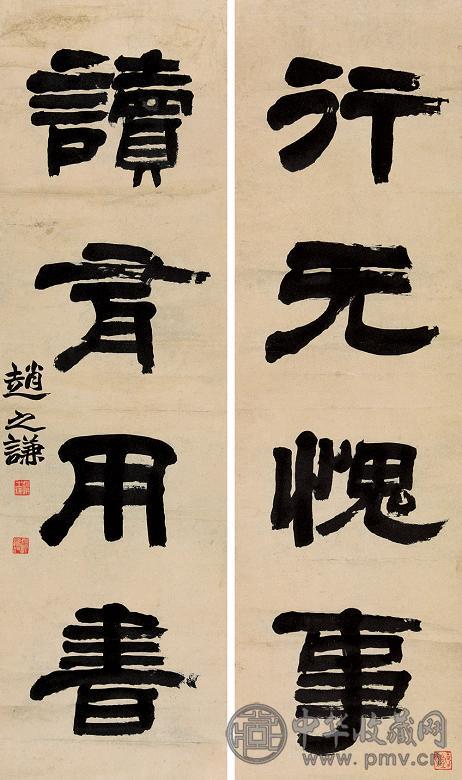 行无愧事
讀有用書
趙之謙
中华收藏网
www.pmv.cn